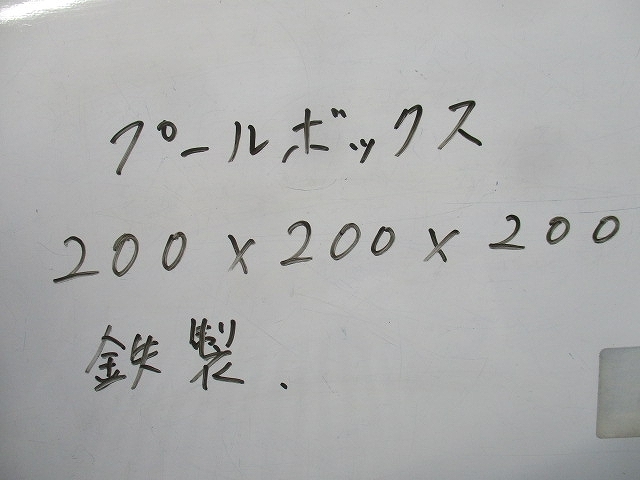 プールボックス
200×200×200
鉄製、